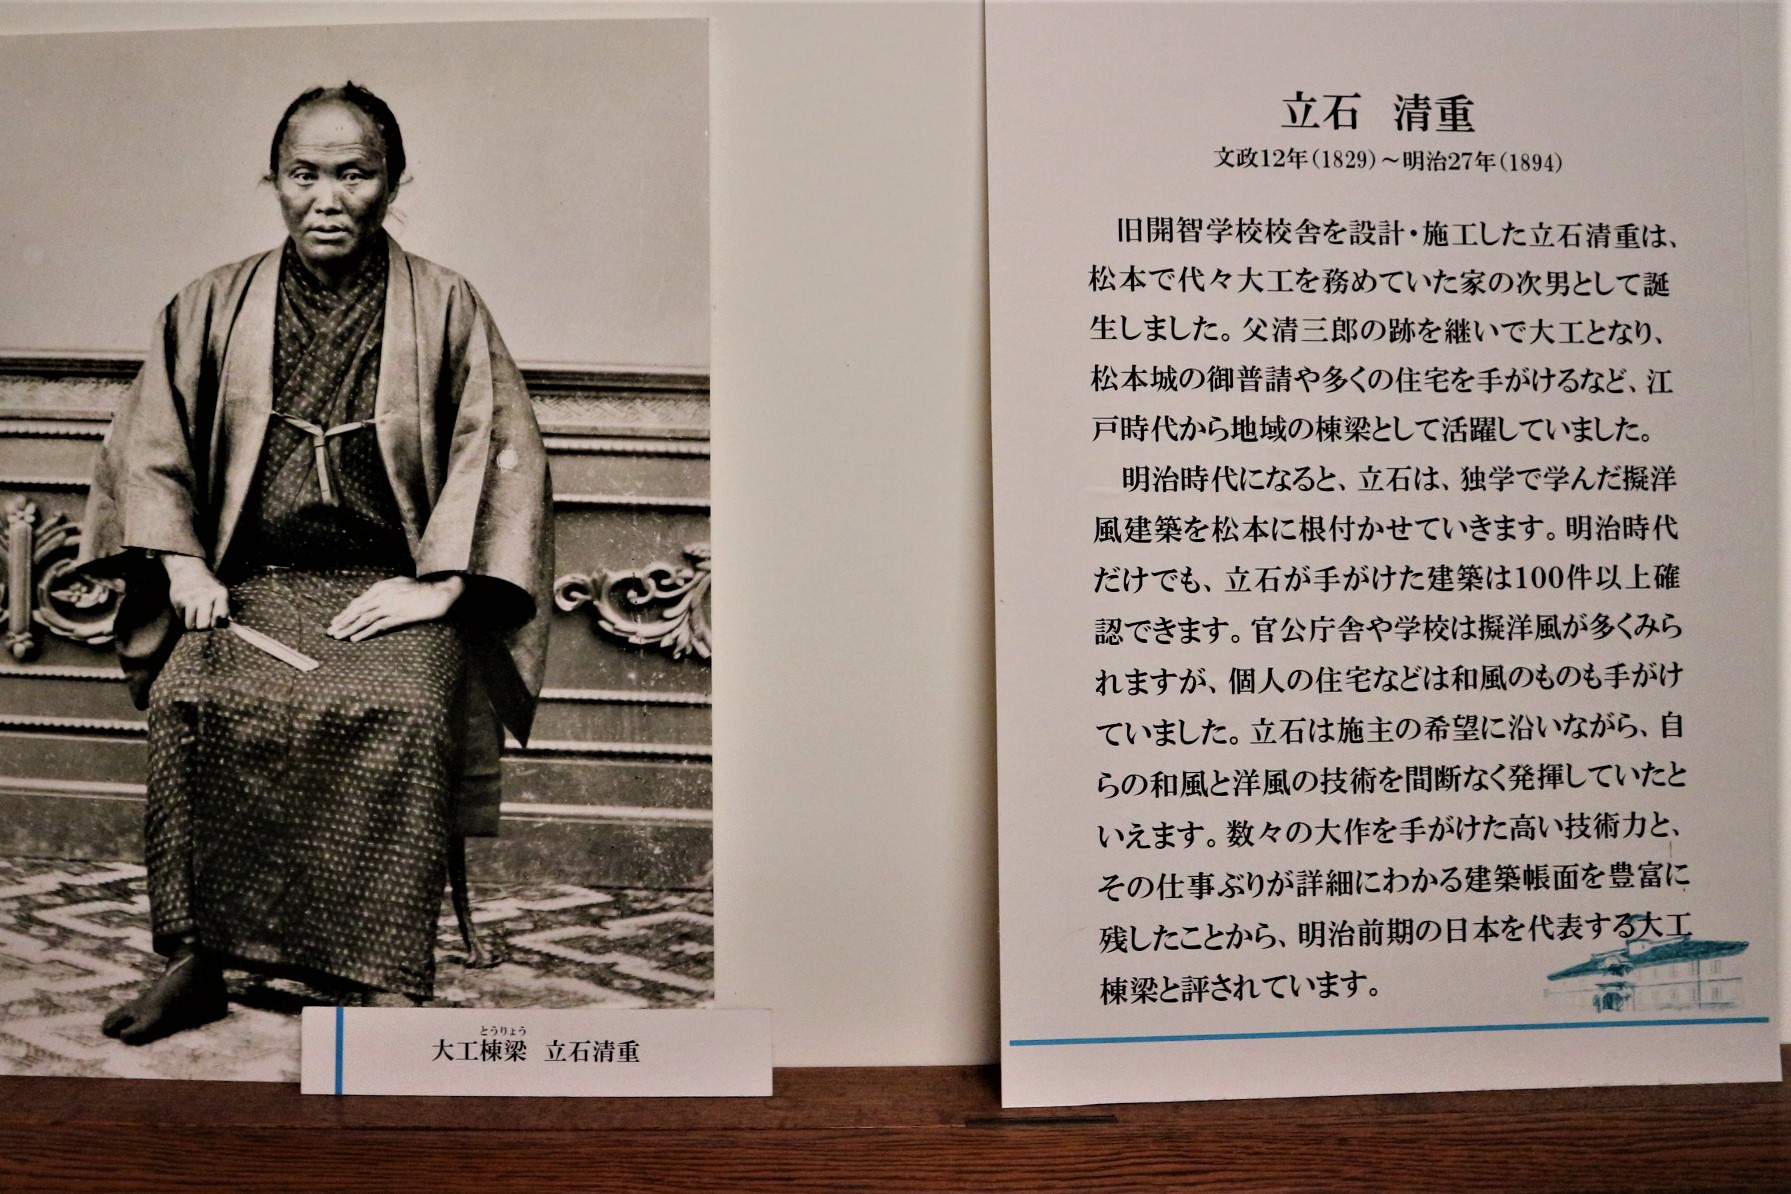 とうりょう
大工棟梁 立石清重
立石 清重
文政12年(1829)～明治27年(1894)
旧開智学校校舎を設計・施工した立石清重は、
松本で代々大工を務めていた家の次男として誕
生しました。父清三郎の跡を継いで大工となり、
松本城の御普請や多くの住宅を手がけるなど、江
戸時代から地域の棟梁として活躍していました。
明治時代になると、立石は、独学で学んだ擬洋
風建築を松本に根付かせていきます。明治時代
だけでも、立石が手がけた建築は100件以上確
認できます。官公庁舎や学校は擬洋風が多くみら
れますが、個人の住宅などは和風のものも手がけ
ていました。立石は施主の希望に沿いながら、自
らの和風と洋風の技術を間断なく発揮していたと
いえます。数々の大作を手がけた高い技術力と、
その仕事ぶりが詳細にわかる建築帳面を豊富に
残したことから、明治前期の日本を代表する大工
棟梁と評されています。